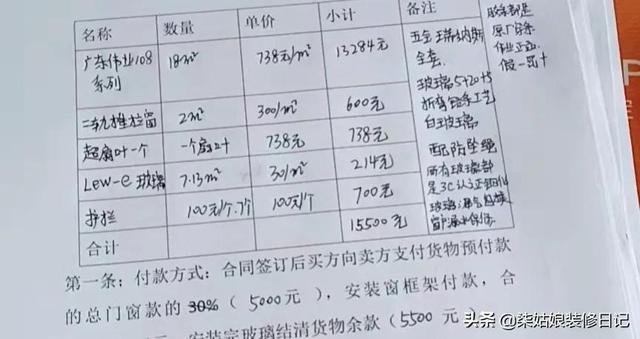 名称 数量 单价 小计 备注
广东伟业108系列 18m² 738元/m² 13284元 五金 瑞纳斯全套
二轨推拉窗 2m² 300/m² 600元 玻璃5+20+5 折弯铝条工艺 白玻璃
超扇叶一个 一个扇叶 738元 738元
Low-e玻璃 7.13m² 30/m² 214元 配防坠绳
护栏 100元/个.7个 100元/个 700元 所有玻璃都是3C认证钢化玻璃
合计 15500元
胶条都是
原厂
伟业正品
假一罚十
第一条：付款方式：合同签订后买方向卖方支付货物预付款
的总门窗款的 30%（ 5000元 ），安装窗框架付款，合
安装完玻璃结清货物余款（5500元
头条 @柒姑娘装修日记